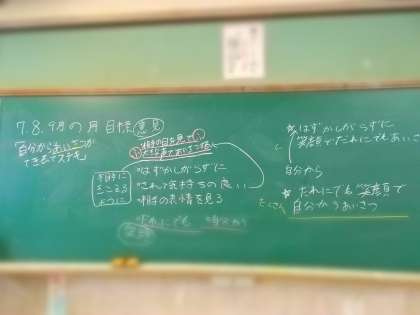 7.8.9月の月目標 意見
自分からあいさつが
できるってステキ
相手の目を見て
大きな声であいさつ
相手に
きこえる
ように
はずかしがらずに
されて気持ちの良い
相手の表情を見る
だれにでも 自分から
笑顔
はずかしがらずに
笑顔でだれにでもあい
自分から
★だれにでも笑顔で
たくさん
自分からあいさつ